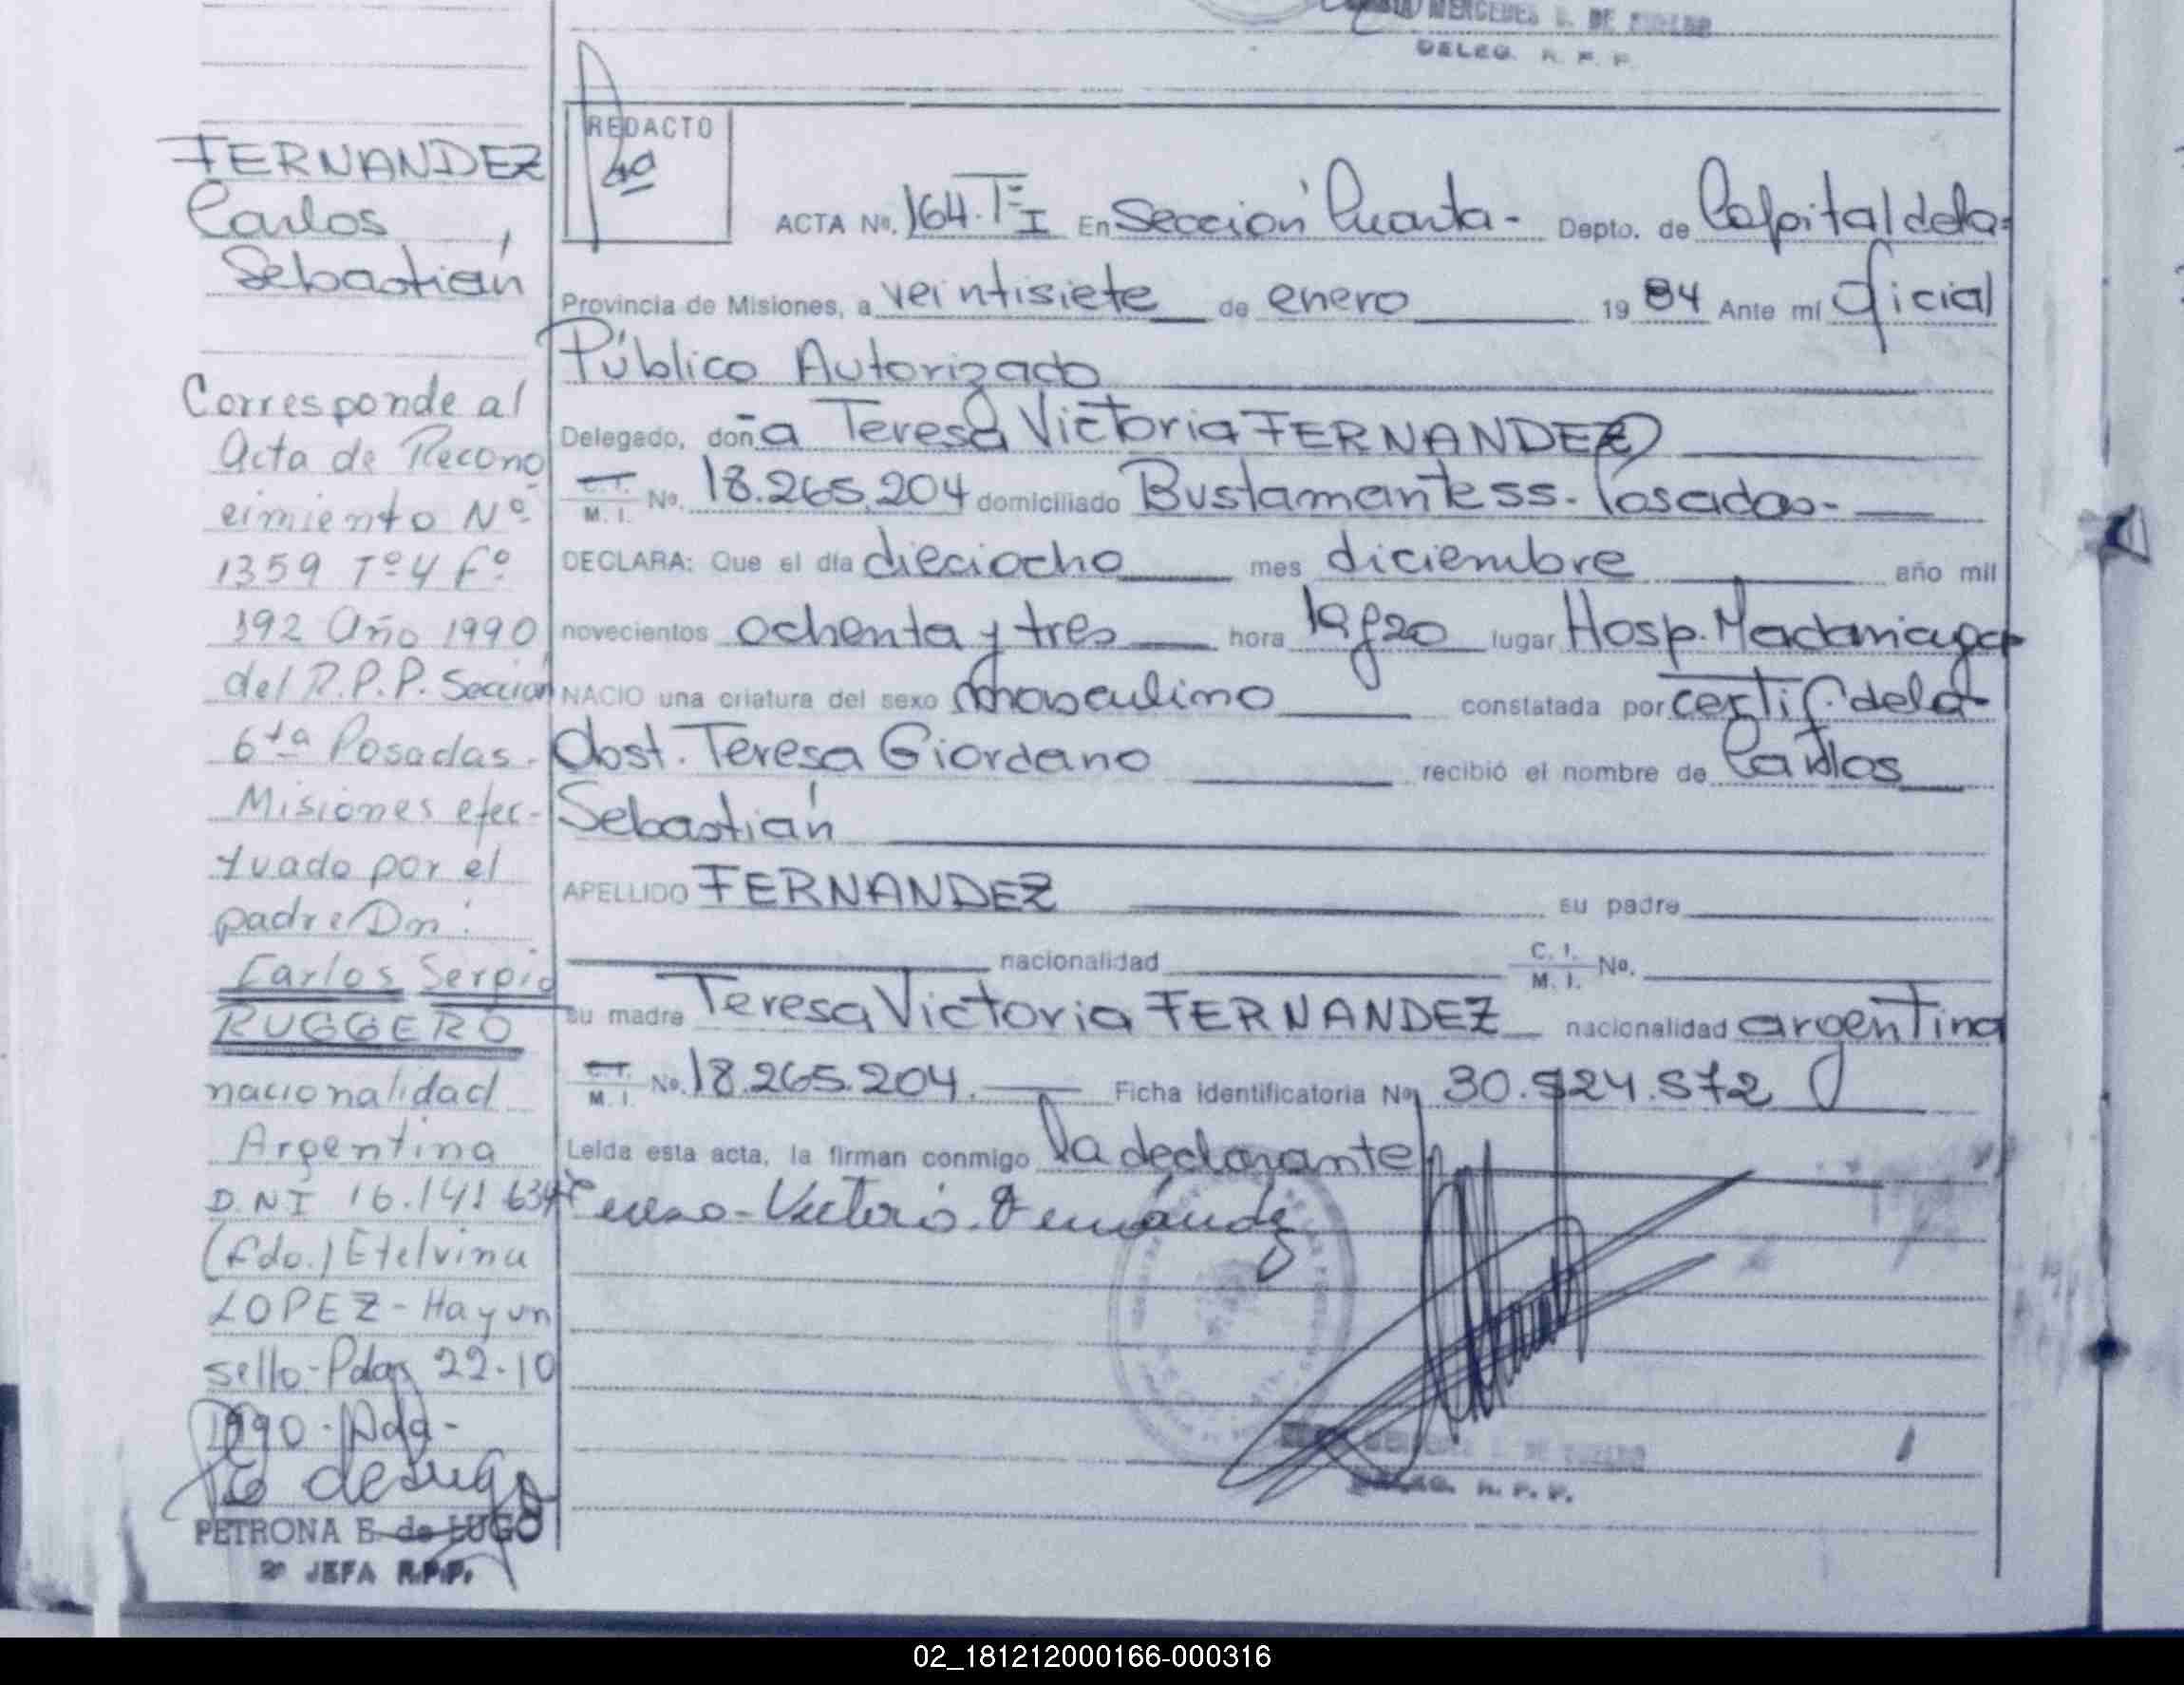 MERCEDES
DELEG. R. P. P.
FERNANDEZ
Carlos
Sebastián
Corresponde al
Acta de Recono
cimiento Nº
1359 Tº 4 Fº
392 Año 1990
del R.P.P. Sección
6ta Posadas-
Misiones efec-
tuado por el
padre Dn:
Carlos Sergio
RUGGERO
nacionalidad
Argentina
D.N.I 16.141.634
(fdo.) Etelvina
LOPEZ - Hay un
sello - Pdas 22-10
1990 -
PETRONA E. de LUGO
2º JEFA R.P.P.
REDACTO
4ª
ACTA Nº. 164.Tº I En Sección Cuarta - Depto. de Capital de la
Provincia de Misiones, a veintisiete de enero 1984 Ante mí Oficial
Público Autorizado
Delegado, doña Teresa Victoria FERNANDEZ
C.I. M. I. No. 18.265.204 domiciliado Bustamante ss. Posadas-
DECLARA: Que el día dieciocho mes diciembre año mil
novecientos ochenta y tres hora 19 y 20 lugar Hosp. Madariaga
NACIO una criatura del sexo masculino constatada por certif. de la
Obst. Teresa Giordano recibió el nombre de Carlos
Sebastián
APELLIDO FERNANDEZ su padre
nacionalidad C. I. M. I. No.
su madre Teresa Victoria FERNANDEZ nacionalidad argentina
C.I. M. I. No. 18.265.204. Ficha Identificatoria No 30.524.572
Leída esta acta, la firman conmigo la declarante
Teresa Victoria Fernández
DELEG. R. P. P.
02_181212000166-000316